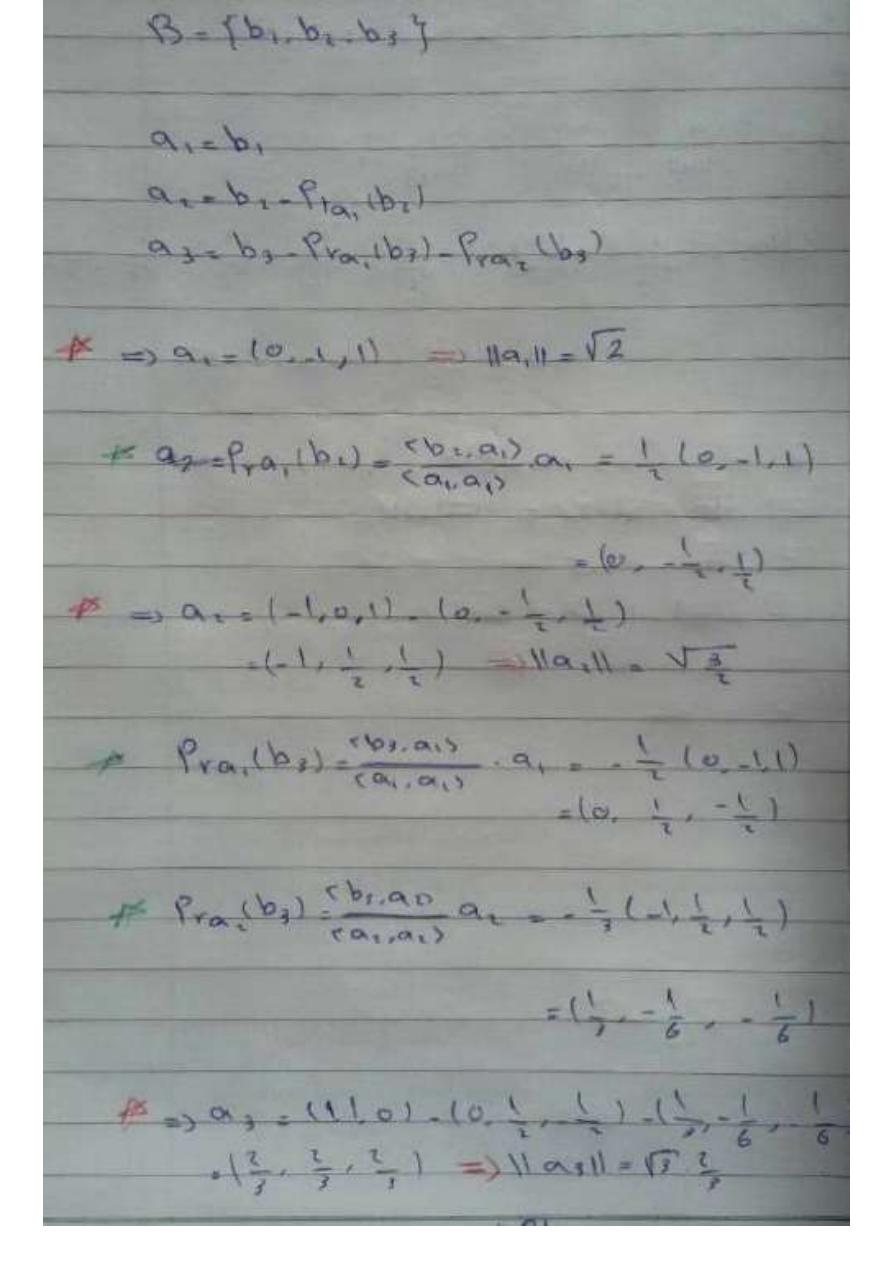 B = {b₁, b₂, b₃}
a₁ = b₁
a₂ = b₂ - Pra₁(b₂)
a₃ = b₃ - Pra₁(b₃) - Pra₂(b₃)
* => a₁ = (0, -1, 1) => ||a₁|| = √2
* a₂ = Pra₁(b₂) = <b₂, a₁>/<a₁, a₁> . a₁ = 1/2 (0, -1, 1)
= (0, -1/2, 1/2)
* => a₂ = (-1, 0, 1) - (0, -1/2, 1/2)
= (-1, 1/2, 1/2) => ||a₂|| = √(3/2)
* Pra₁(b₃) = <b₃, a₁>/<a₁, a₁> . a₁ = -1/2 (0, -1, 1)
= (0, 1/2, -1/2)
* Pra₂(b₃) = <b₃, a₂>/<a₂, a₂> a₂ = -1/3 (-1, 1/2, 1/2)
= (1/3, -1/6, -1/6)
* => a₃ = (1, 1, 0) - (0, 1/2, -1/2) - (1/3, -1/6, -1/6
= (2/3, 2/3, 2/3) => ||a₃|| = √3 2/3